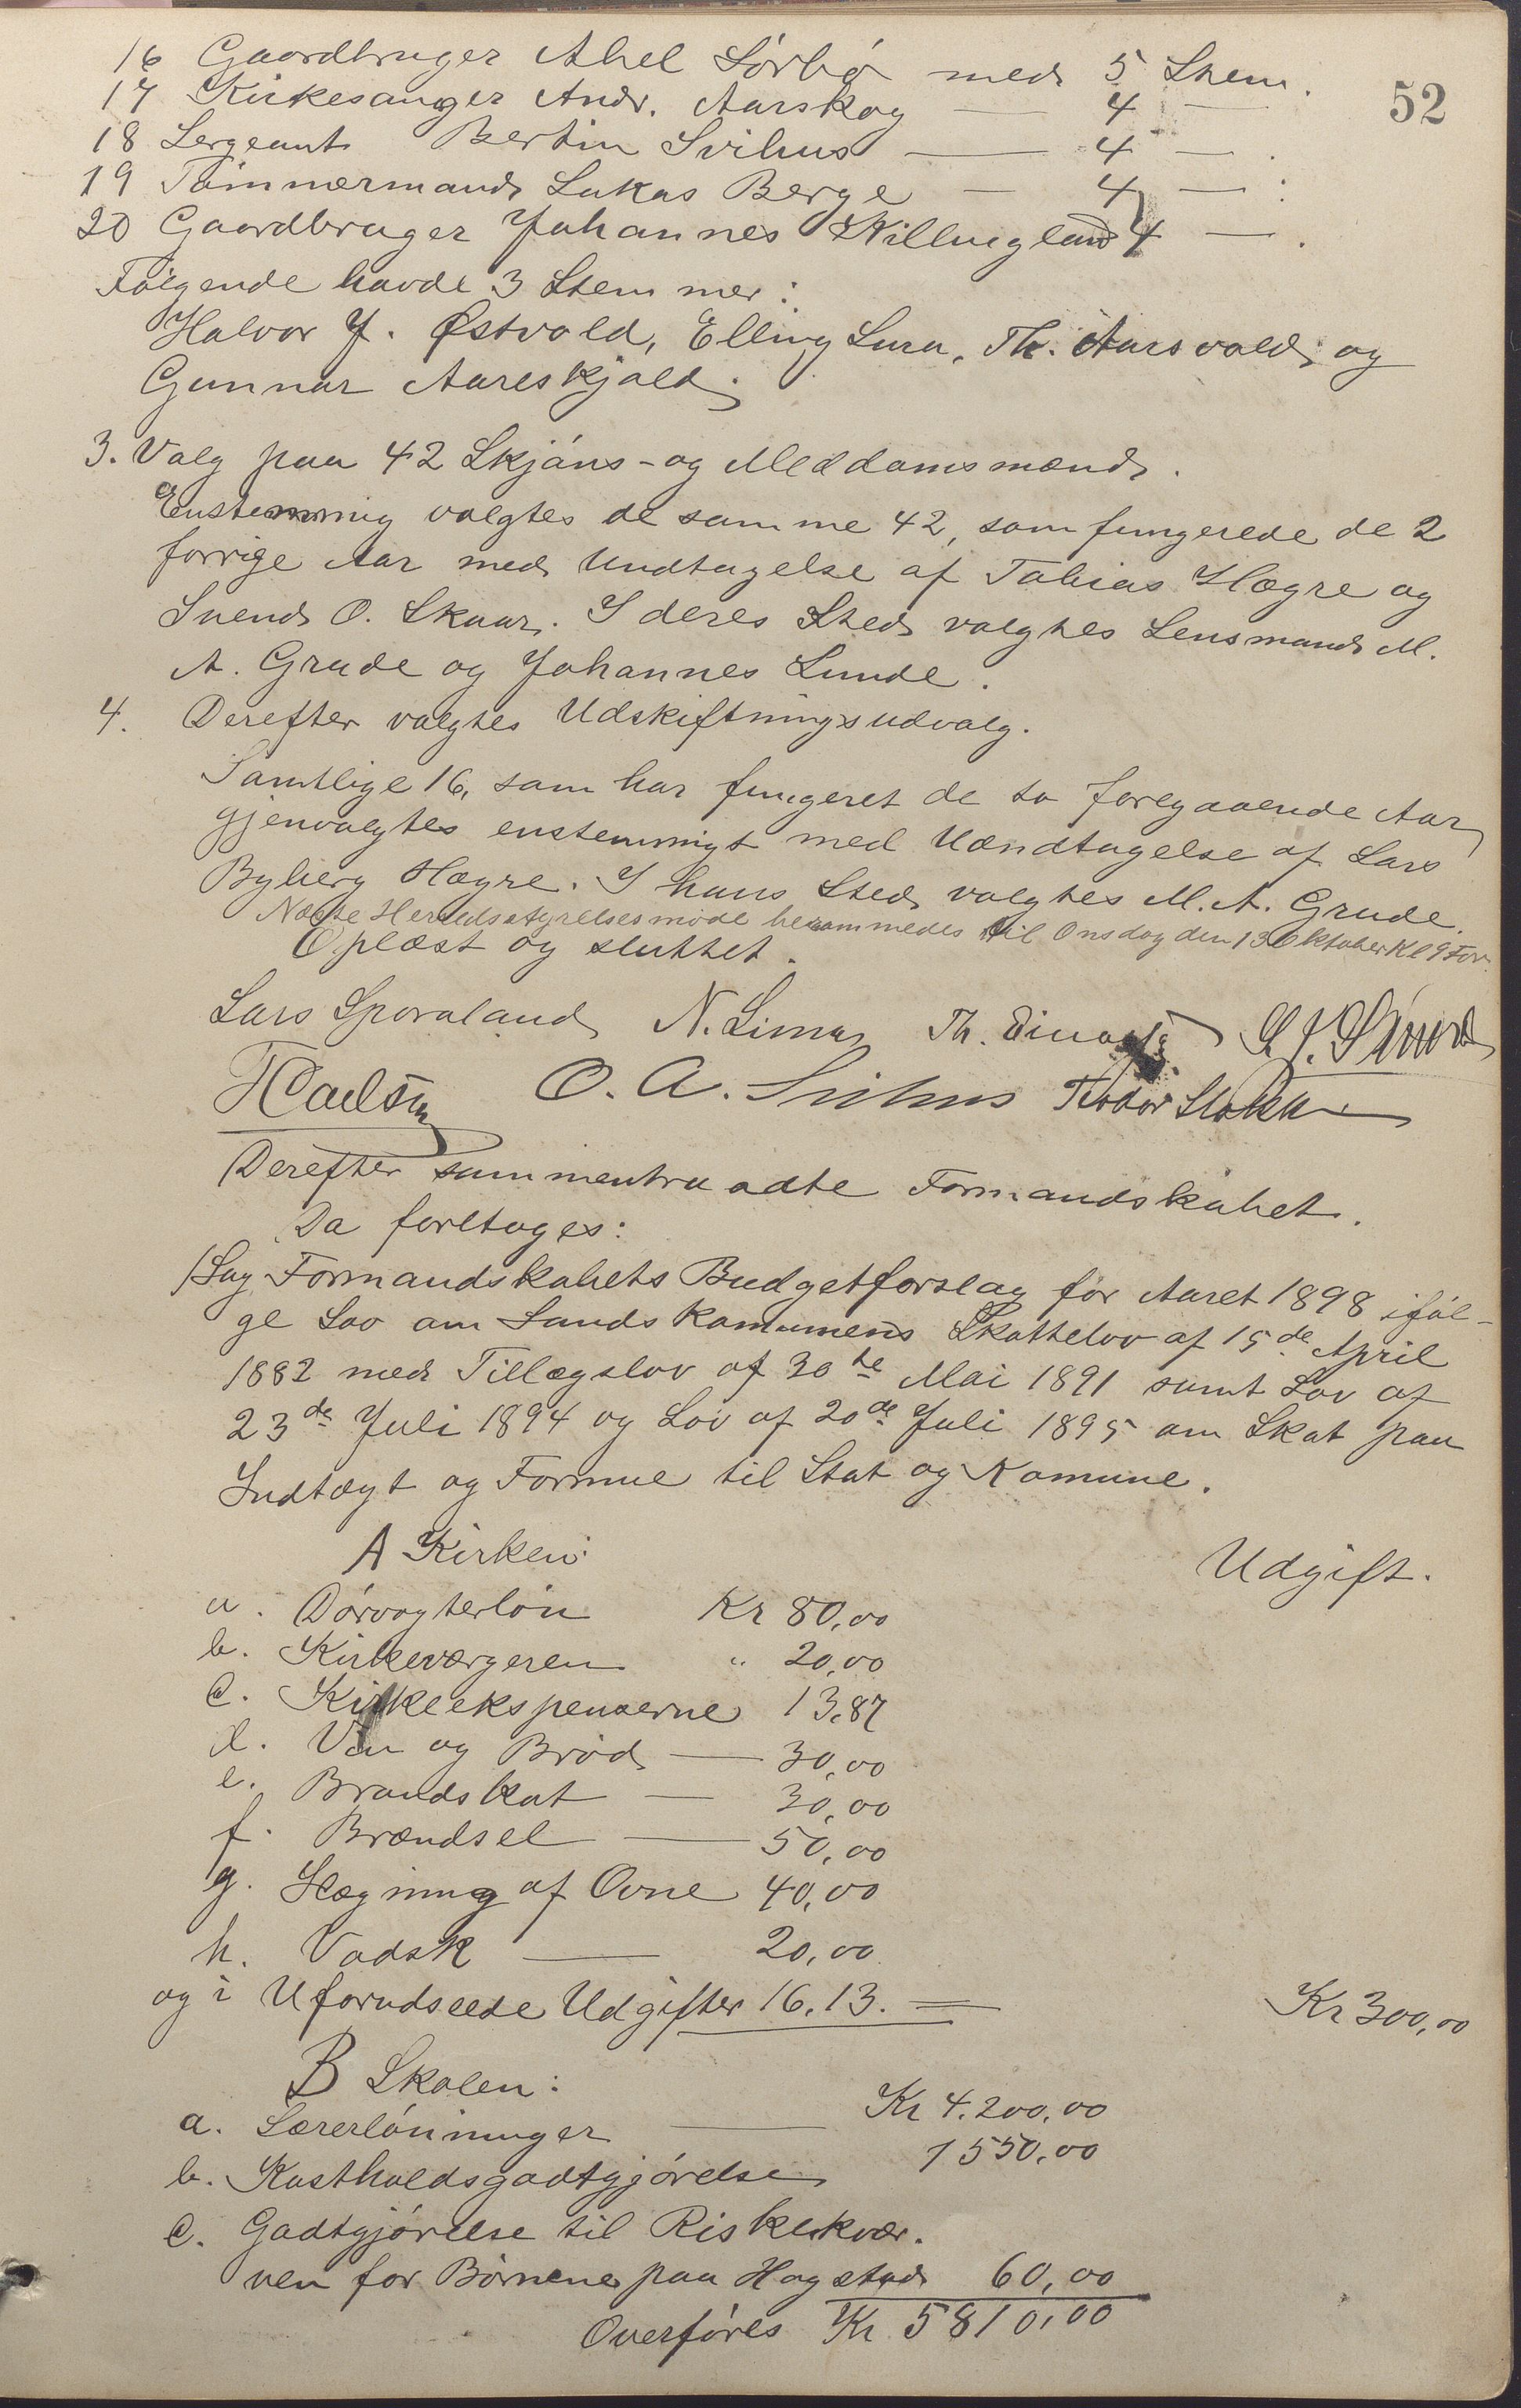 52
16 Gaardbruger Abel Sörbö med 5 Stem.
17 Kirkesanger Andr. Aarskog — 4 —
18 Sergeant Bertin Svihus — 4 — .
19 Tömmermand Lukas Berge — 4 — :
20 Gaardbruger Johannes Skillingland 4 — .
Fölgende havde 3 Stemmer:
Halvor J. Østvold, Elling Lura, Th. Aarsvold og
Gunnar Aareskjold.
3. Valg paa 42 Skjöns- og Meddomsmænd.
Enstemmig valgtes de samme 42, som fungerede de 2
forrige Aar med Undtagelse af Tobias Hogre og
Svend O. Skaar. I deres Sted valgtes Lensmand M.
A. Grude og Johannes Lunde.
4. Derefter valgtes Udskiftningsudvalg.
Samtlige 16, som har fungeret de to foregaaende Aar
gjenvalgtes enstemmigt med Undtagelse af Lars
Byberg Høgre. I hans Sted valgtes M. A. Grude.
Næste Heredsstyrelsesmøde berammedes til Onsdag den 13 Oktober Kl 9 For.
Oplæst og sluttet.
Lars Sporaland N. Lima Th.
O. A. Svihus Thodor
Derefter sammentraadte Formandskabet.
Da foretoges:
1/ Sag Formandskabets Budgetforslag for Aaret 1898 iföl-
ge Lov om Landskommunens Skattelov af 15de April
1882 med Tillægslov af 30te Mai 1891 samt Lov af
23de Juli 1894 og Lov af 20de Juli 1895 om Skat paa
Indtægt og Formue til Stat og Komune.
A Kirken: Udgift.
a. Dörvogterlön Kr 80,00
b. Kirkeværgeren " 20,00
c. Kirkeekspenserne 13,87
d. Vin og Bröd — 30,00
e. Brandskat — 30,00
f. Brændsel — 50,00
g. Lægning af Ovne 40,00
h. Vadsk — 20,00
og i Uforudseede Udgifter 16.13. = Kr 300,00
B Skolen:
a. Lærerlönninger — Kr 4.200,00
b. Kostholdsgodtgjörelse 1550,00
c. Godtgjörelse til Riskekvær.
nen for Börnene paa Hogstad 60,00
Overföres Kr 5810,00